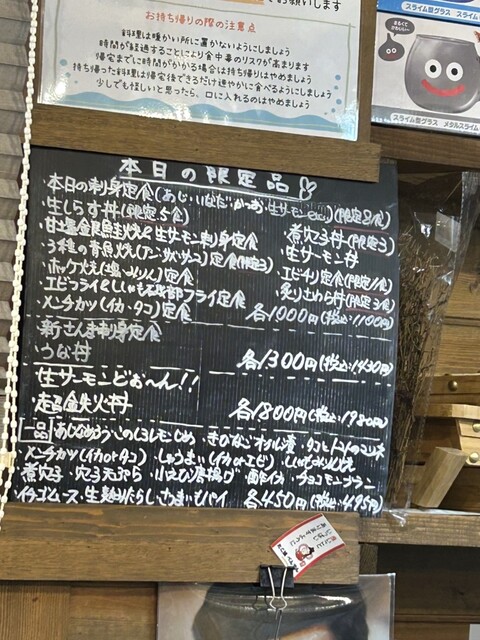 お願いします
お持ち帰りの際の注意点
料理は暖かい所に置かないようにしましょう
時間が経過することにより食中毒のリスクが高まります
帰宅までに時間がかかる場合は持ち帰りはやめましょう
持ち帰った料理は帰宅後できるだけ速やかに食べるようにしましょう
少しでも怪しいと思ったら、口に入れるのはやめましょう
スライム型グラス スライム
まるくて
かわいい
スライム型グラス メタルスライム
本日の限定品
・本日の刺身定食(あじ・いなだ・かつお・生サーモン)(限定8食)
・生しらす丼(限定5食)
煮穴子丼(限定3)
・甘塩金目鯛焼と生サーモン刺身定食
・生サーモン丼
・3種の青魚焼(アジ・サバ・サンマ)定食(限定3)
・エビチリ定食(限定10食)
・ホッケ焼(塩・みりん)定食
・炙りさわら丼(限定3食)
・エビフライ&しゃも フライ定食
・メンチカツ(イカ・タコ)定食
各1000円(税込1100円)
・新さんま刺身定食
・うな丼
各1300円(税込1430円)
・生サーモンどぉ〜ん!!
・超金失火丼
各1800円(税込1980円)
一品
メンチカツ(イカorタコ)・しゅうまい(イカorエビ)
煮穴子・穴子天ぷら・小えび唐揚げ・酢イカ・チョコモナブラン
イチゴムース・生麩みたらし・さつまいもパイ 各450円(税込495円)